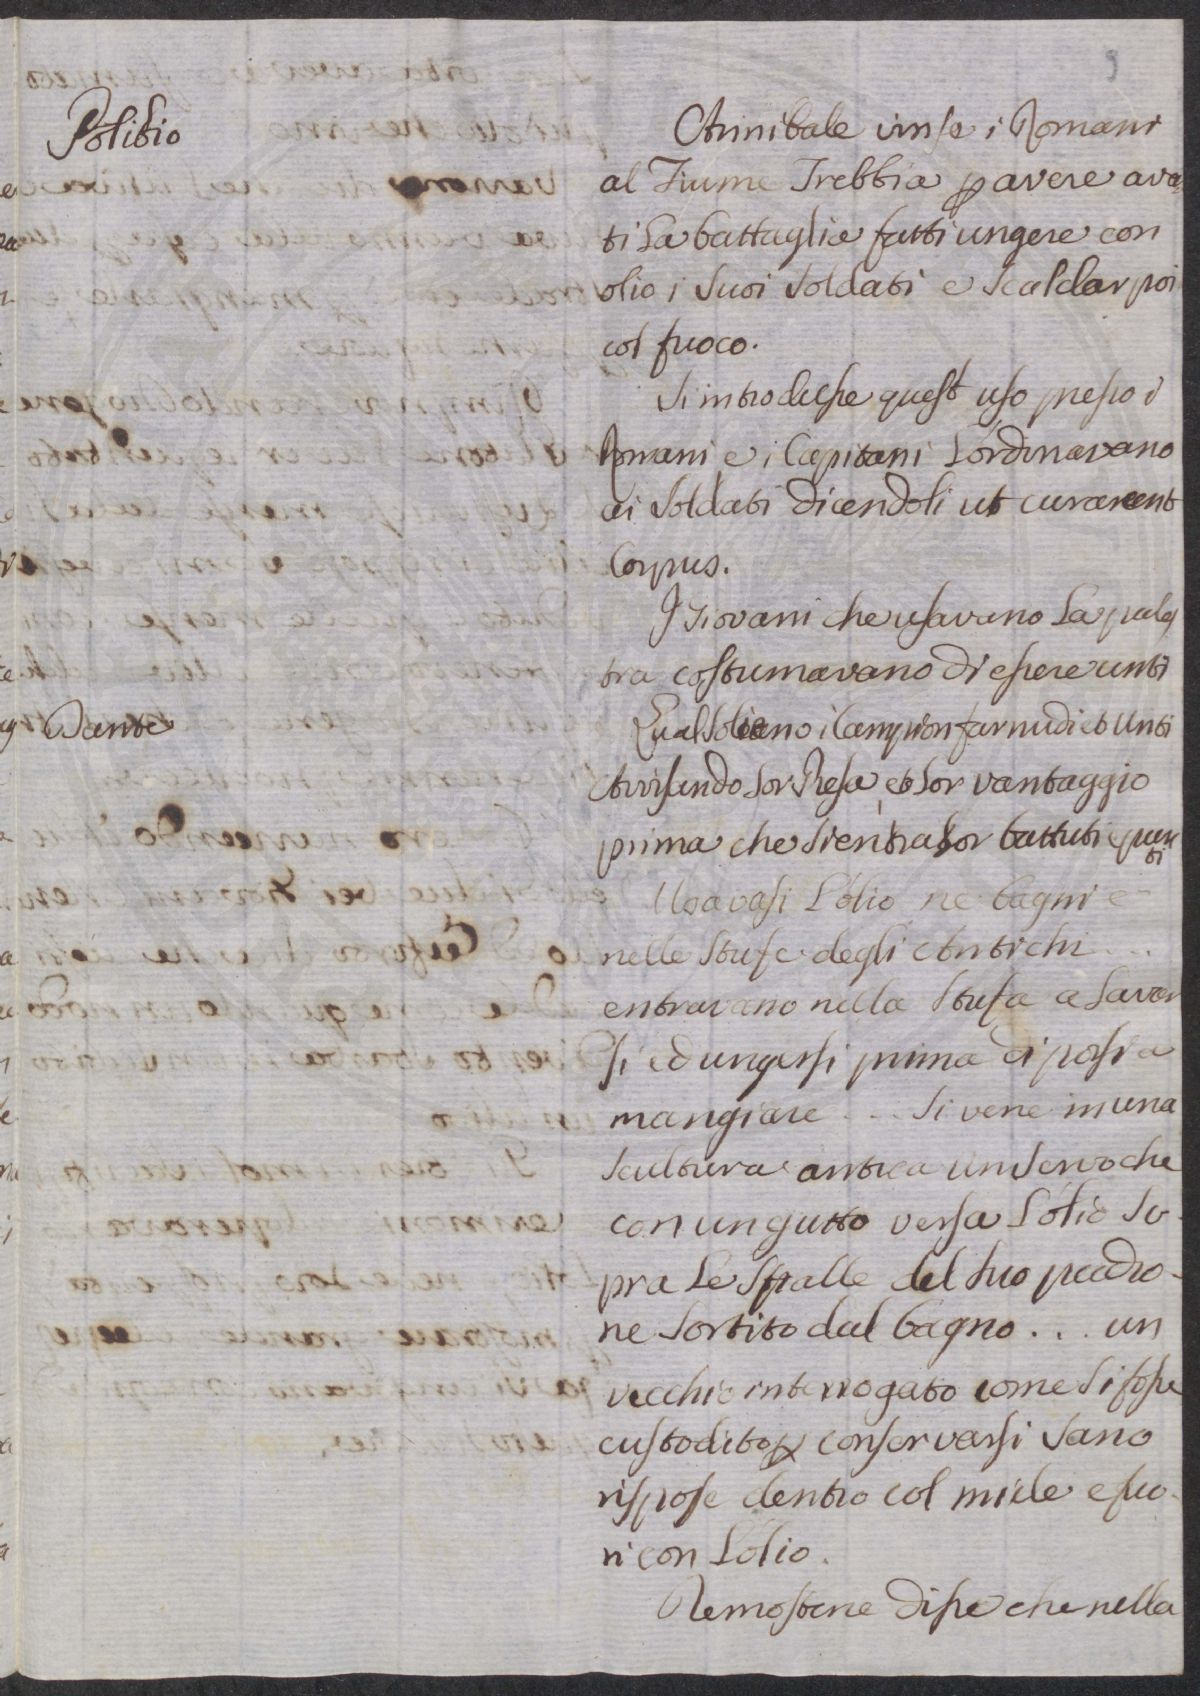 9
Polibio
Annibale vinse i Romani
al Fiume Trebbia p avere avā
ti la battaglia fatti ungere con
olio i suoi soldati e scaldar poi
col fuoco.
Si introdusse quest uso presso i
Romani e i Capitani l'ordinavano
ai soldati dicendoli ut curarent
Corpus.
I Giovani che usavano la pales
tra costumavano di essere unti
Dante
Qual soleano i Campion far nudi et unti
Avvisando lor Presa, et lor vantaggio
prima che sien tra lor battuti e pun
ti
Usavasi l'olio ne bagni e
nelle stufe degli Antichi ...
entravano nella stufa a lavar
si ed ungersi prima di porsi a
mangiare ... si vene in una
scultura antica un servo che
con un gutto versa l'olio so
pra le spalle del suo padro-
ne sortito dal bagno ... un
vecchio interrogato come si fosse
custodito p conservarsi sano
rispose dentro col miele e fuo-
ri con l'olio.
Demostene disse che nella